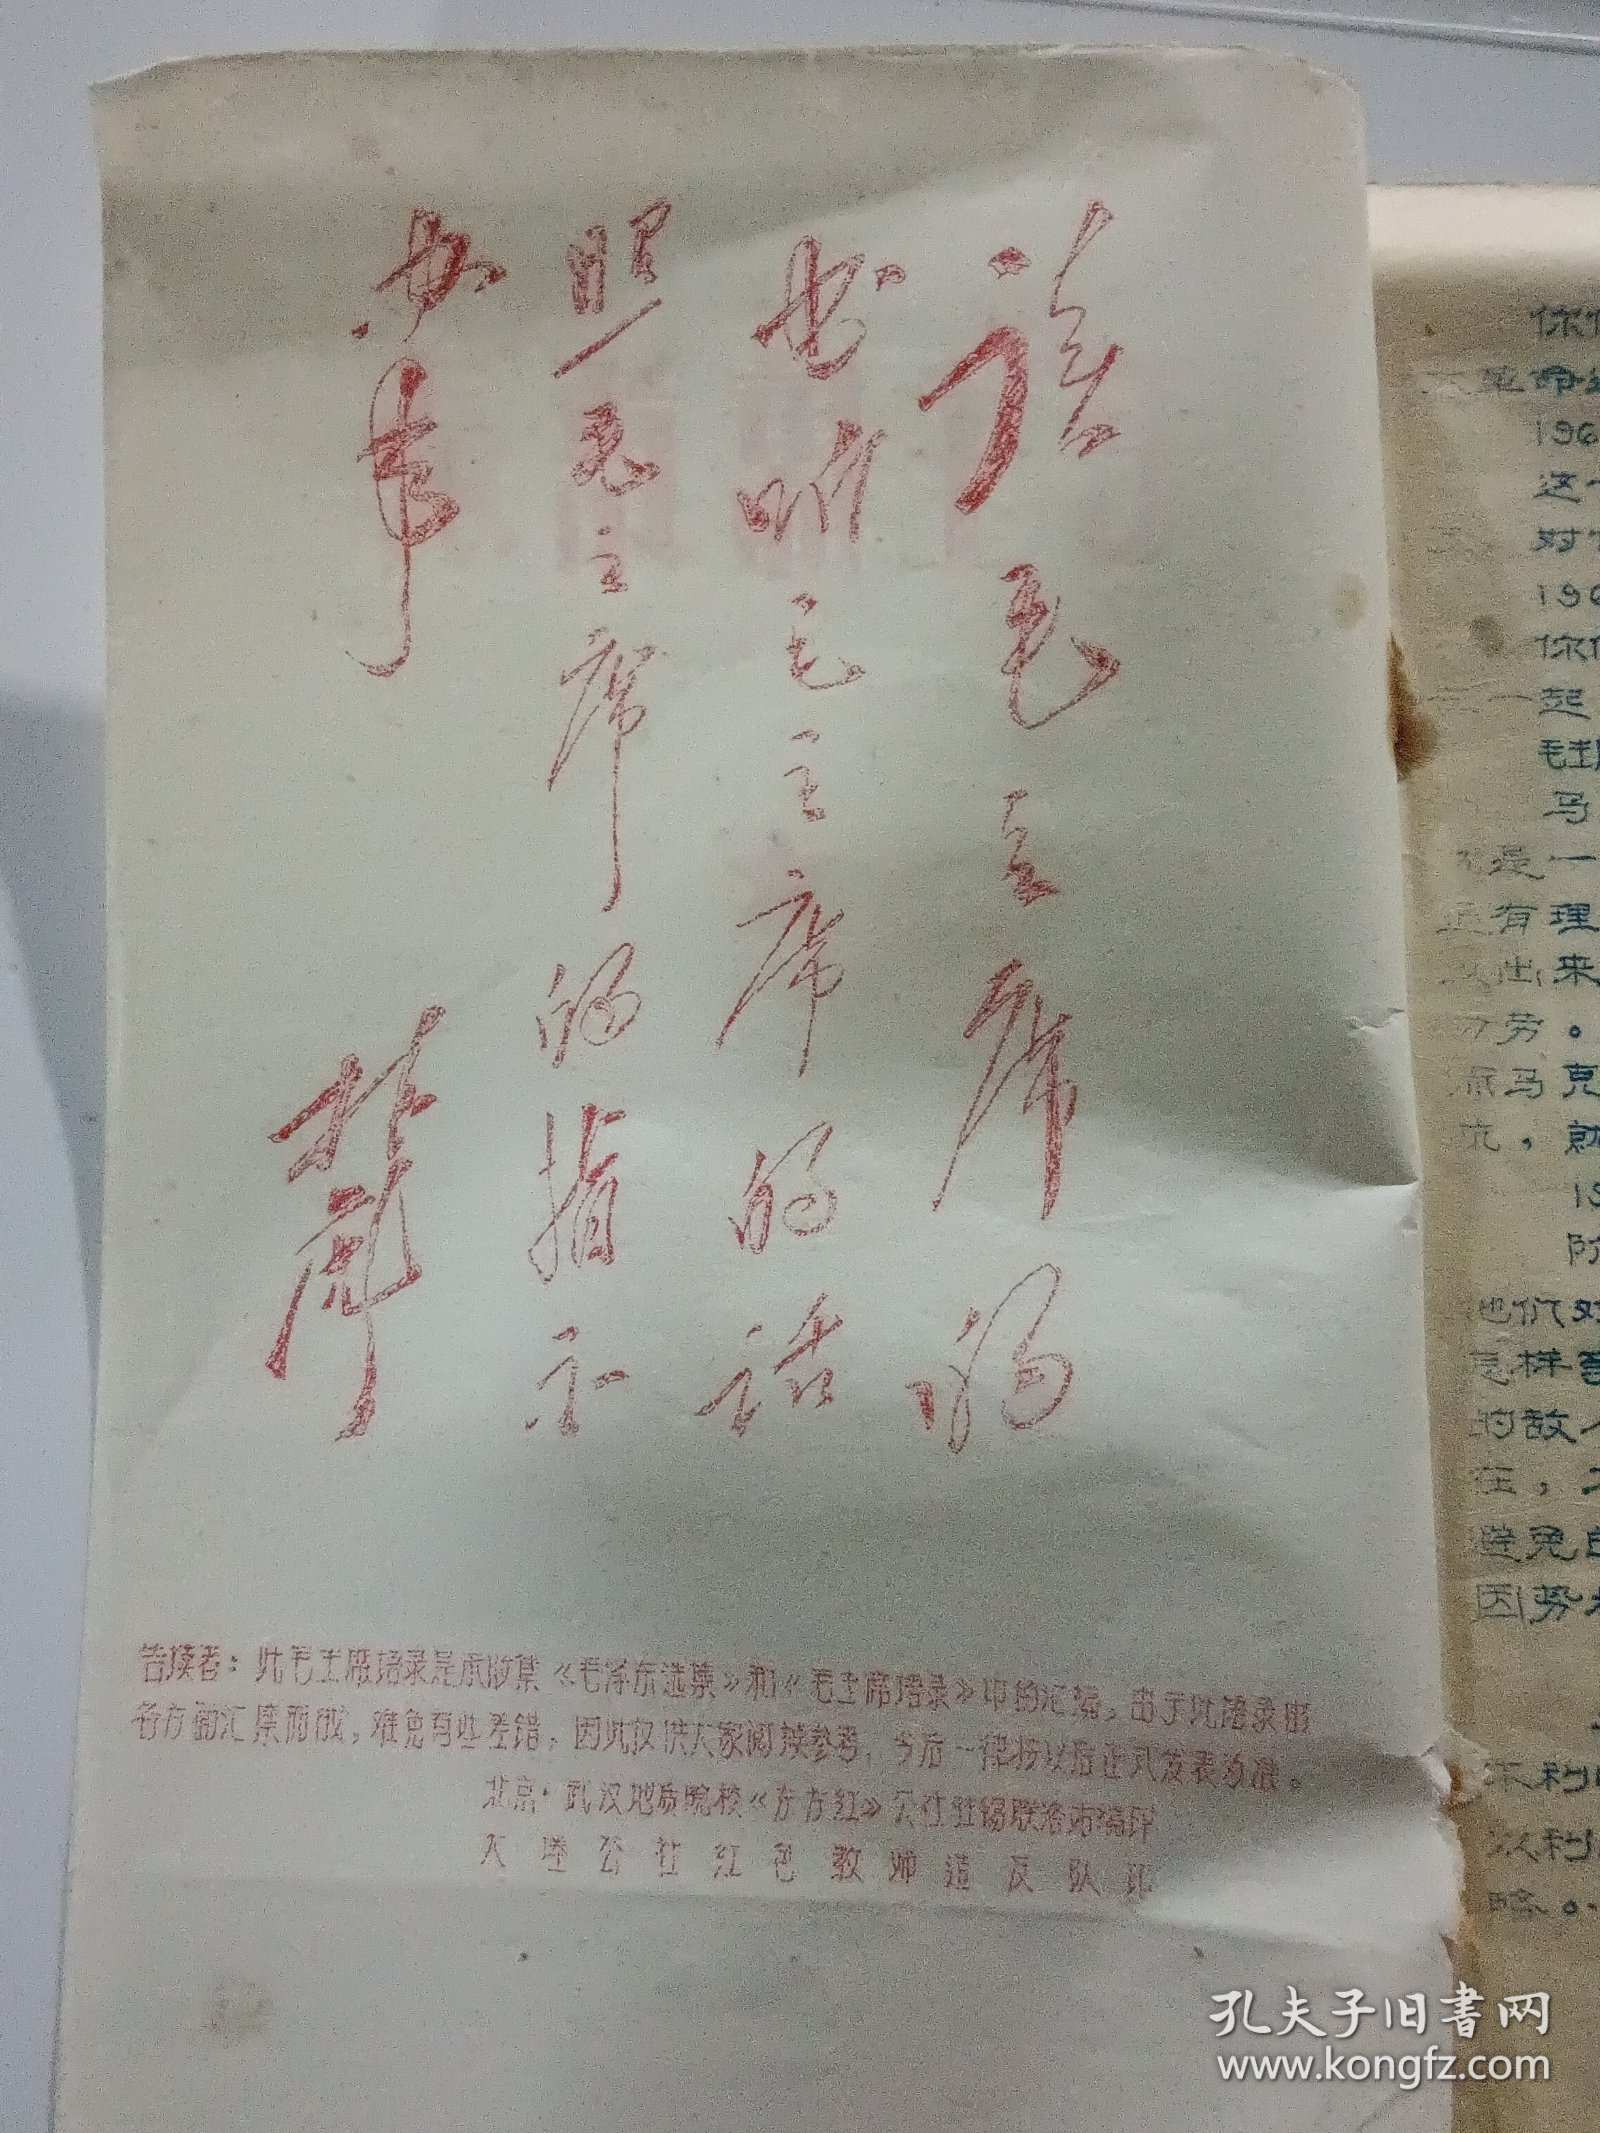 读毛主席的
书听毛主席的话
照毛主席的指示
办事
林彪
告读者：此毛主席语录是未收集《毛泽东选集》和《毛主席语录》中的汇编，由于此语录由
各方面汇集而成，难免有些差错，因此仅供大家阅读参考，今后一律按以后正式发表为准。
北京·武汉地质院校《东方红》公社驻锡联络站编印
公社红色教师造反队印
你
革命
196
这
对
196
你
起
毛主
马
是一
有理
出来
功劳。
马克
，就
19
阶
他们对
怎样
的敌
在，
避免
因势
不利
以利
略。
孔夫子旧书网
www.kongfz.com